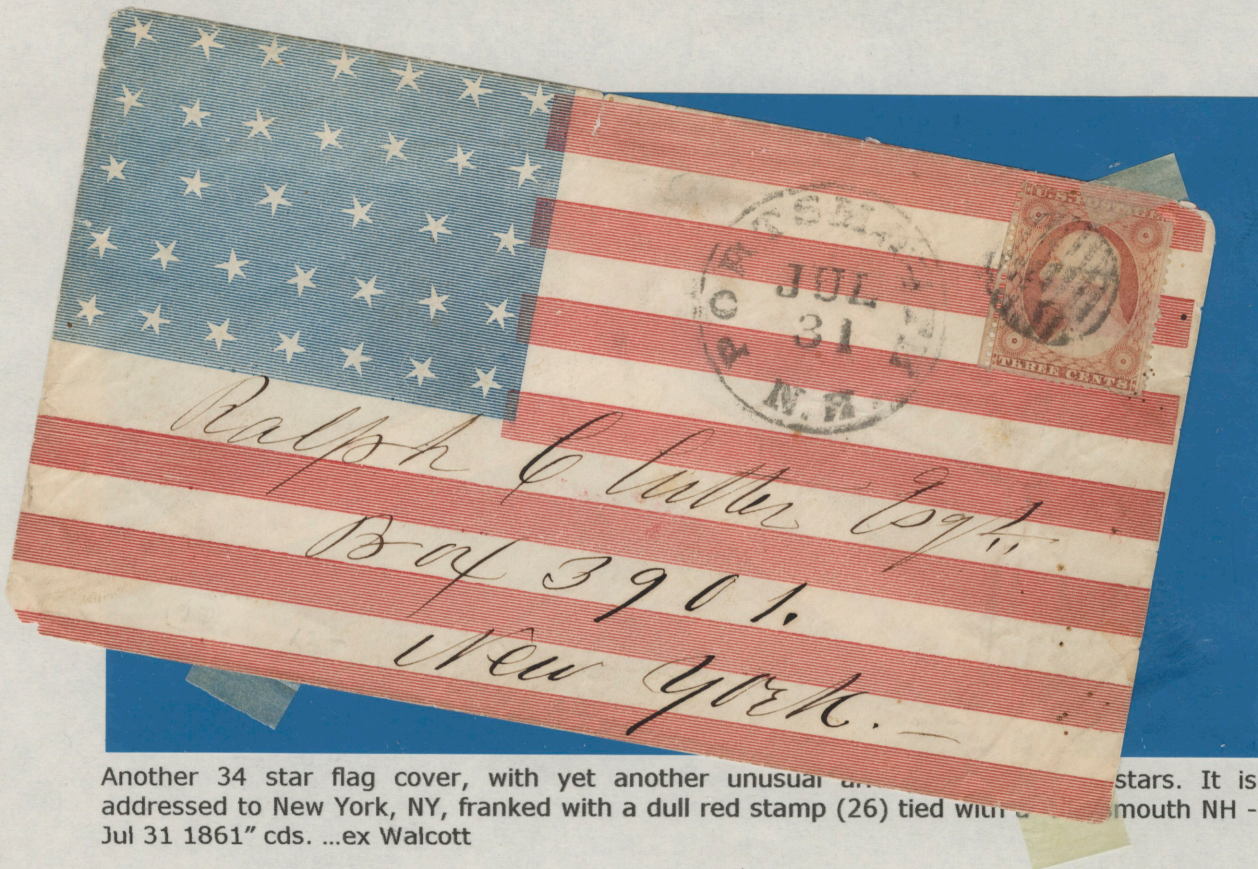 PORTSMOUTH
JUL
31
N.H.
U.S. POSTAGE
THREE CENTS
Ralph C Cutter Esqr.
Box 3901.
New York.
Another 34 star flag cover, with yet another unusual stars. It is
addressed to New York, NY, franked with a dull red stamp (26) tied with mouth NH -
Jul 31 1861” cds. ...ex Walcott